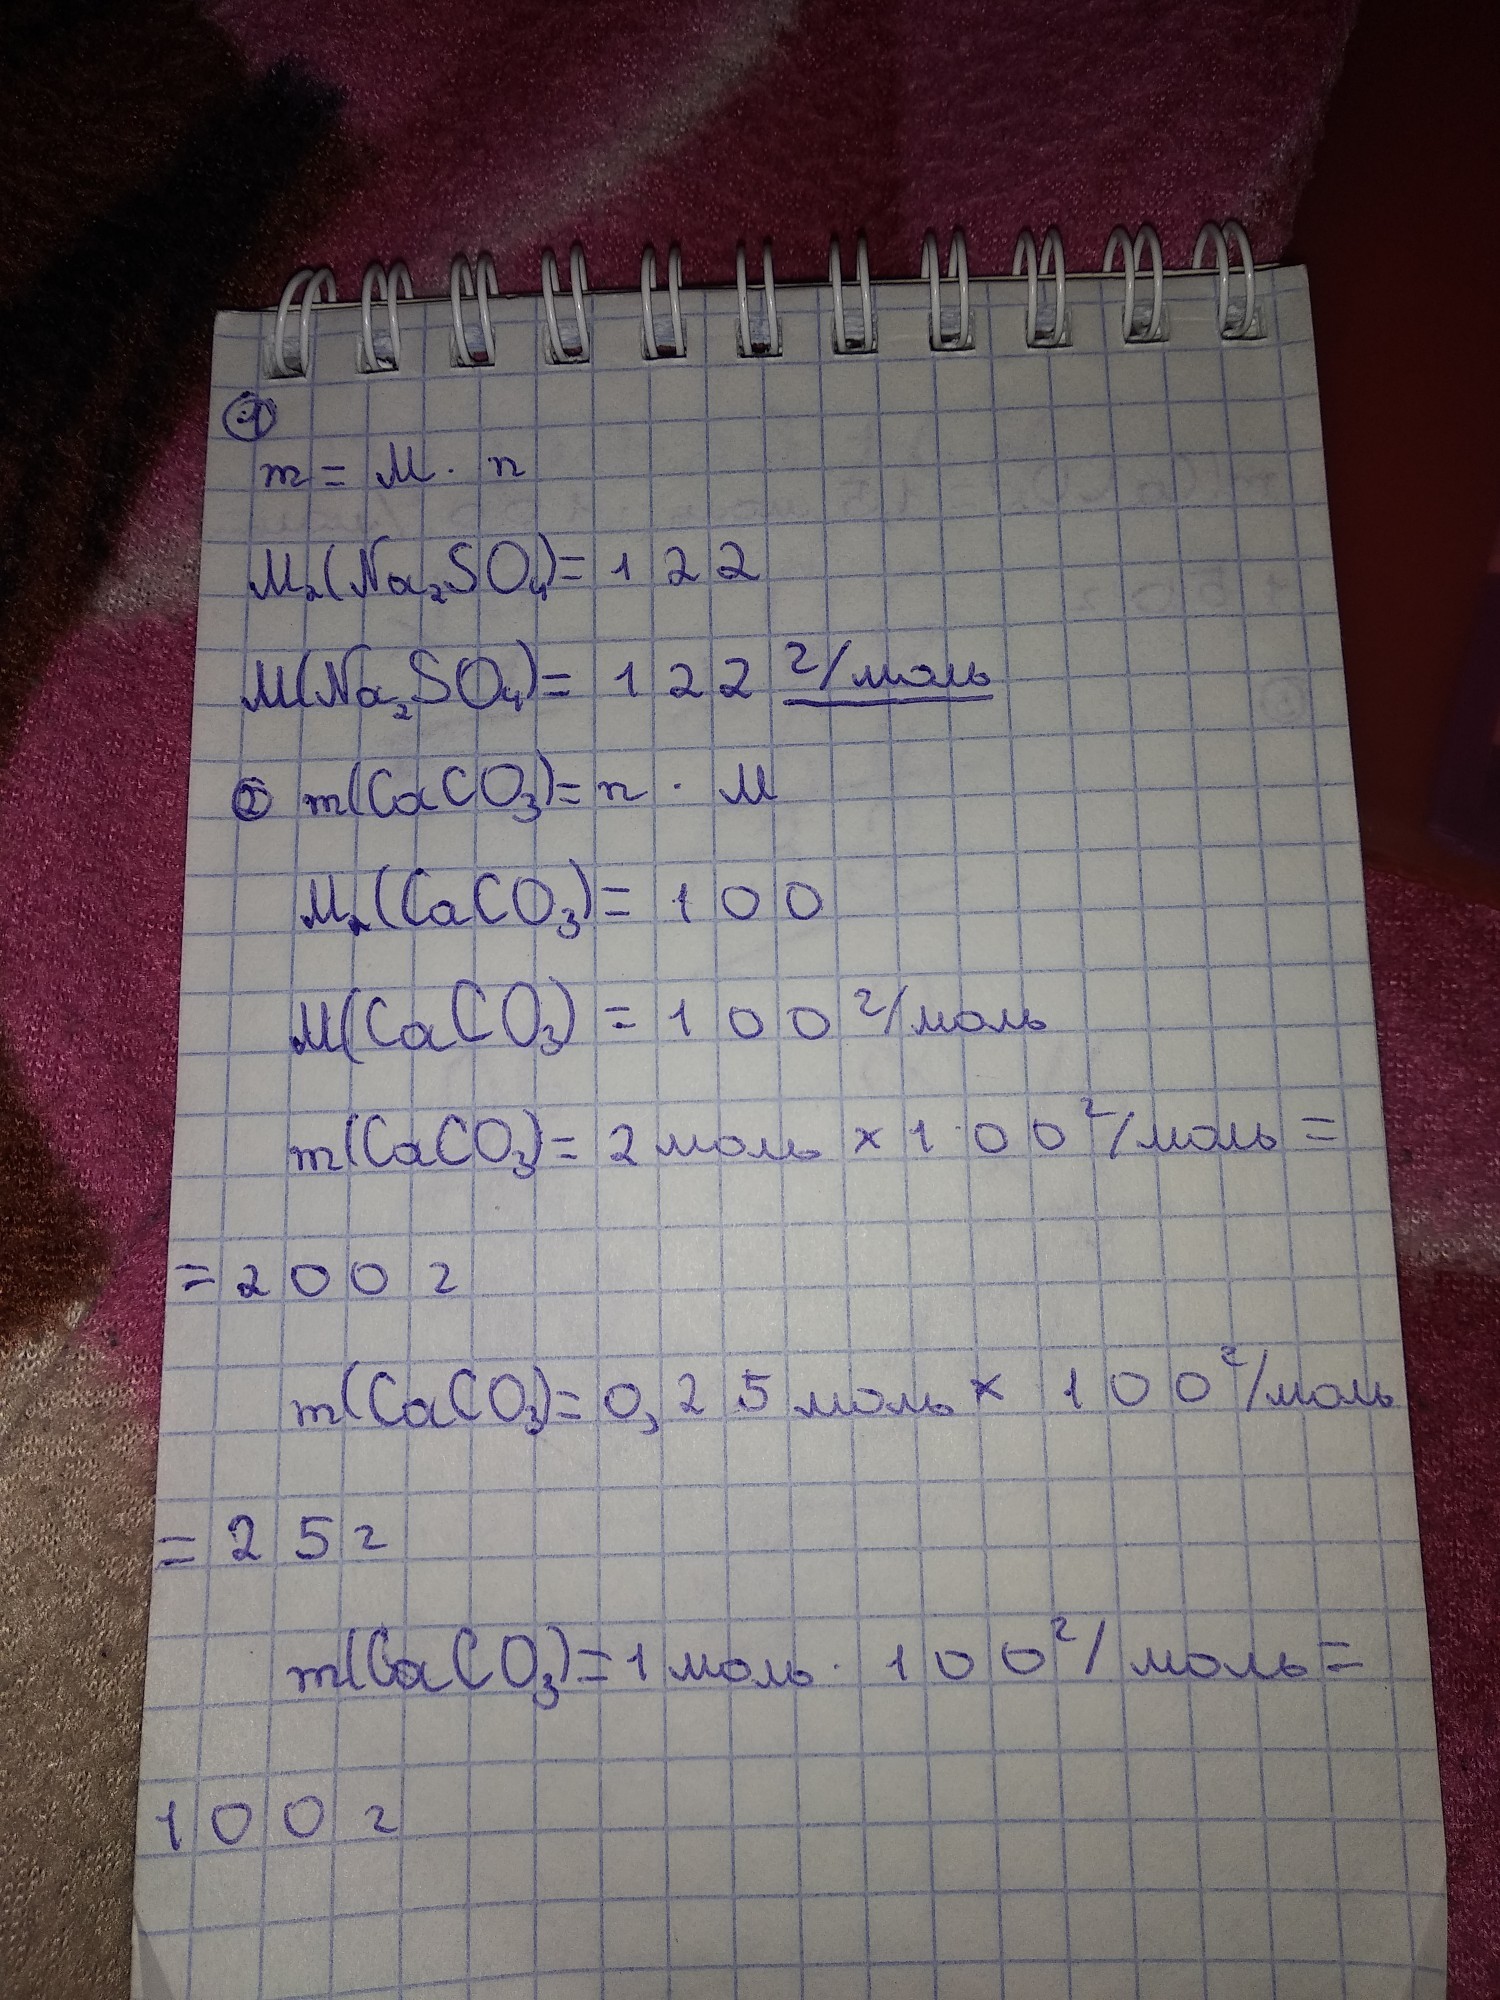 1
m = M · n
Mг(Na₂SO₄)= 122
M(Na₂SO₄)= 122 г/моль
2 m(CaCO₃)= n · M
Mг(CaCO₃)= 100
M(CaCO₃) = 100 г/моль
m(CaCO₃)= 2 моль × 100 г/моль =
= 200 г
m(CaCO₃)= 0,25 моль × 100 г/моль
= 25 г
m(CaCO₃)= 1 моль · 100 г/моль =
100 г